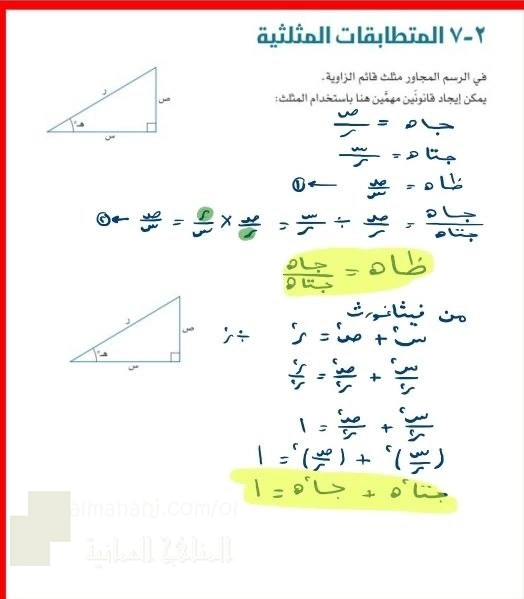 ٧-٢ المتطابقات المثلثية
في الرسم المجاور مثلث قائم الزاوية.
يمكن إيجاد قانونَين مهمَّين هنا باستخدام المثلث:
ر
ص
هـ°
س
جاه = ص/ر
جتاه = س/ر
ظاه = ص/س ← ①
جاه/جتاه = ص/ر ÷ س/ر = ص/ر × ر/س = ص/س ← ②
ظاه = جاه/جتاه
من فيثاغورث
س² + ص² = ر² ÷ ر²
ر
ص
هـ°
س
س²/ر² + ص²/ر² = ر²/ر²
س²/ر² + ص²/ر² = ١
(س/ر)² + (ص/ر)² = ١
جتا²ه + جا²ه = ١
almanahj.com/om
المناهج العمانية